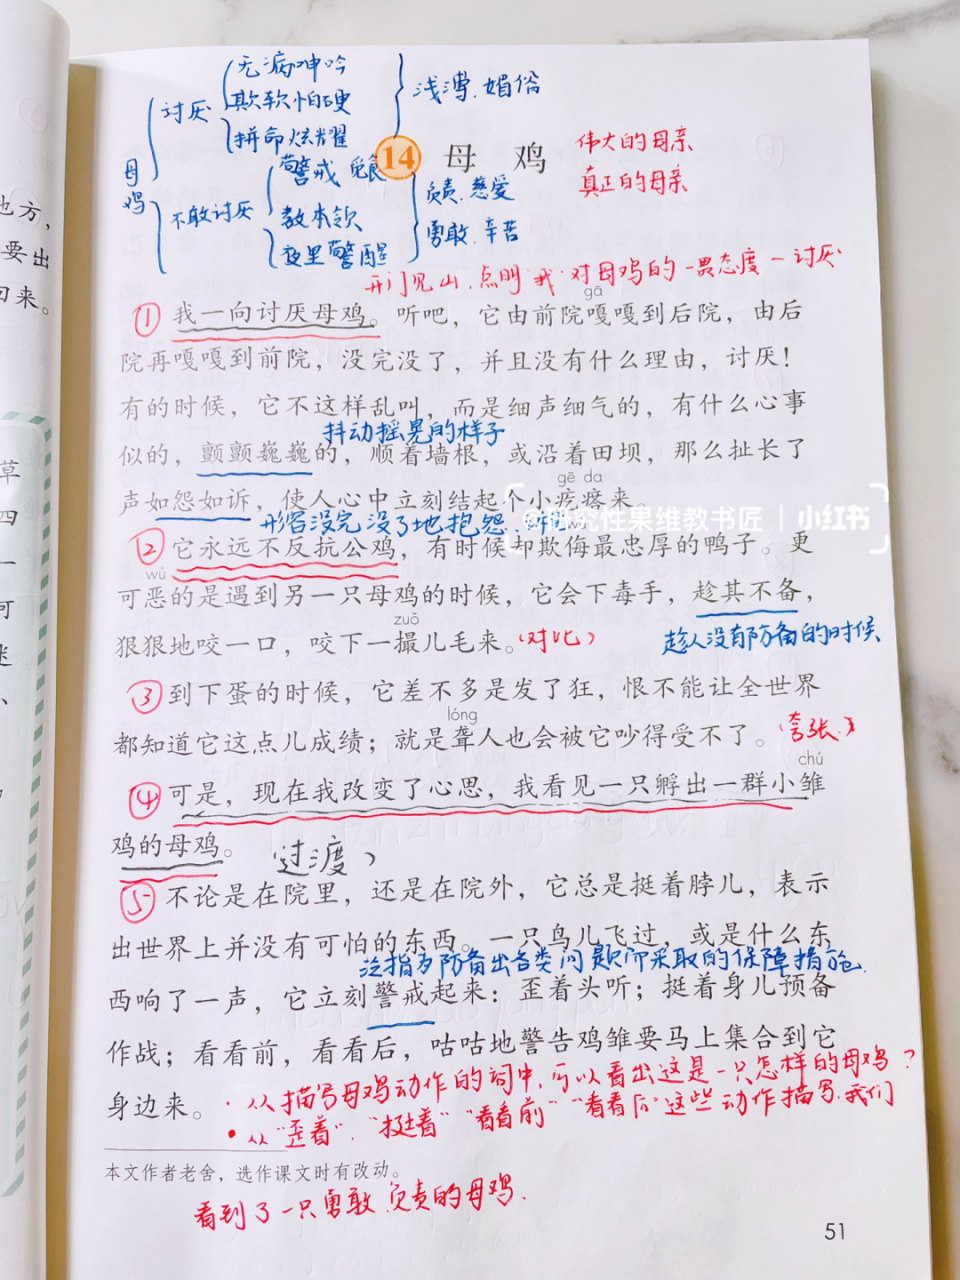 无病呻吟
讨厌 欺软怕硬 浅薄、媚俗
拼命炫耀
母鸡
14 母鸡
警戒 觅食
不敢讨厌 教本领 负责、慈爱
夜里警醒 勇敢、辛苦
伟大的母亲
真正的母亲
开门见山、点明"我"对母鸡的一贯态度—讨厌
gā
① 我一向讨厌母鸡。听吧，它由前院嘎嘎到后院，由后
院再嘎嘎到前院，没完没了，并且没有什么理由，讨厌！
有的时候，它不这样乱叫，而是细声细气的，有什么心事
抖动摇晃的样子
似的，颤颤巍巍的，顺着墙根，或沿着田坝，那么扯长了
gē da
声如怨如诉，使人心中立刻结起个小疙瘩来。
@研究性果维教书匠 | 小红书
形容没完没了地抱怨
② 它永远不反抗公鸡，有时候却欺侮最忠厚的鸭子。更
wù
可恶的是遇到另一只母鸡的时候，它会下毒手，趁其不备，
zuǒ
狠狠地咬一口，咬下一撮儿毛来。（对比）
趁人没有防备的时候
③ 到下蛋的时候，它差不多是发了狂，恨不能让全世界
lóng
都知道它这点儿成绩；就是聋人也会被它吵得受不了。（夸张）
chú
④ 可是，现在我改变了心思，我看见一只孵出一群小雏
鸡的母鸡。
（过渡）
⑤ 不论是在院里，还是在院外，它总是挺着脖儿，表示
出世界上并没有可怕的东西。一只鸟儿飞过，或是什么东
泛指为防备出各类问题而采取的保障措施.
西响了一声，它立刻警戒起来：歪着头听；挺着身儿预备
作战；看看前，看看后，咕咕地警告鸡雏要马上集合到它
身边来。
·从描写母鸡动作的词中，可以看出这是一只怎样的母鸡？
•从"歪着"、"挺着""看看前""看看后"这些动作描写，我们
本文作者老舍，选作课文时有改动。
看到了一只勇敢、负责的母鸡.
51
地方，
要出
回来。
草
四
一
河
迷